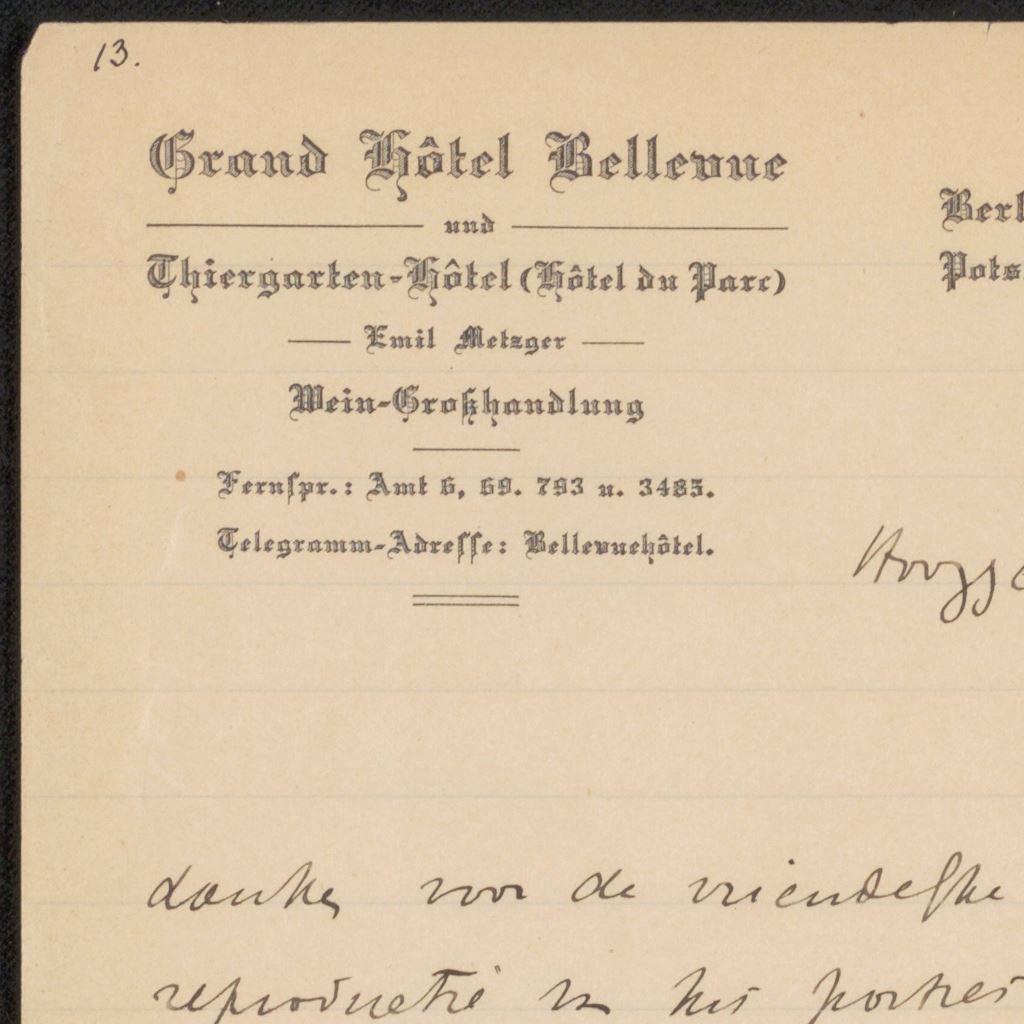 13.
Grand Hôtel Bellevue
und
Thiergarten-Hôtel (Hôtel du Parc)
Emil Metzger
Wein-Großhandlung
Fernspr.: Amt 6, 69. 793 u. 3485.
Telegramm-Adresse: Bellevuehôtel.
Berl
Pots
Hoogg
danke voor de vriendelijke
reproductie